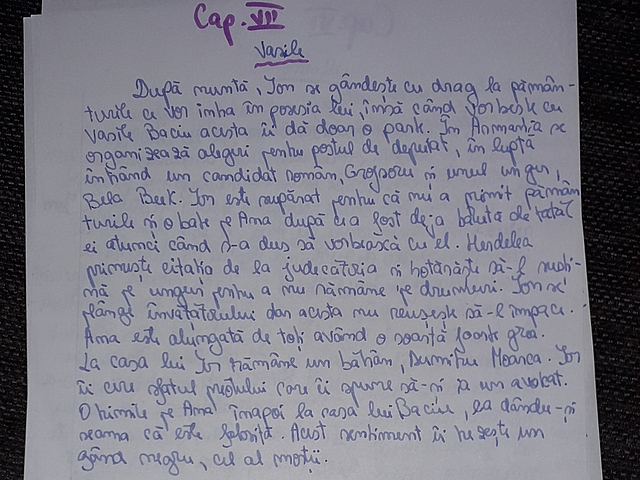 Cap. VII
Vasile
După nuntă, Ion se gândește cu drag la pămân-
turile ce vor intra în posesia lui, însă când vorbește cu
Vasile Baciu acesta îi dă doar o parte. În Armadia se
organizează alegeri pentru postul de deputat, în luptă
intrând un candidat român, Grofșoru și unul ungur,
Bela Beck. Ion este supărat pentru că nu a primit pămân
turile și o bate pe Ana după ce a fost deja bătută de tatăl
ei atunci când s-a dus să vorbească cu el. Herdelea
primește citația de la judecătoria și hotărăște să-l susți-
nă pe unguri pentru a nu rămâne pe drumuri. Ion se
plânge învățătorului dar acesta nu reușește să-l împace.
Ana este alungată de toți având o soartă foarte grea.
La casa lui Ion rămâne un bătrân, Dumitru Moarca. Ion
îi cere sfatul preotului care îi spune să-și ia un avocat.
O trimite pe Ana înapoi la casa lui Baciu, ea dându-și
seama că este folosită. Acest sentiment îi trezește un
gând negru, cel al morții.